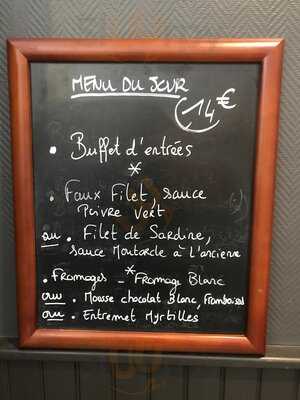 MENU DU JOUR
14€
. Buffet d'entrées
*
. Faux Filet, sauce
Poivre Vert
ou . Filet de Sardine,
sauce Moutarde à L'ancienne
*
. Fromages - Fromage Blanc
ou . Mousse chocolat Blanc, Framboises
ou . Entremet Myrtilles